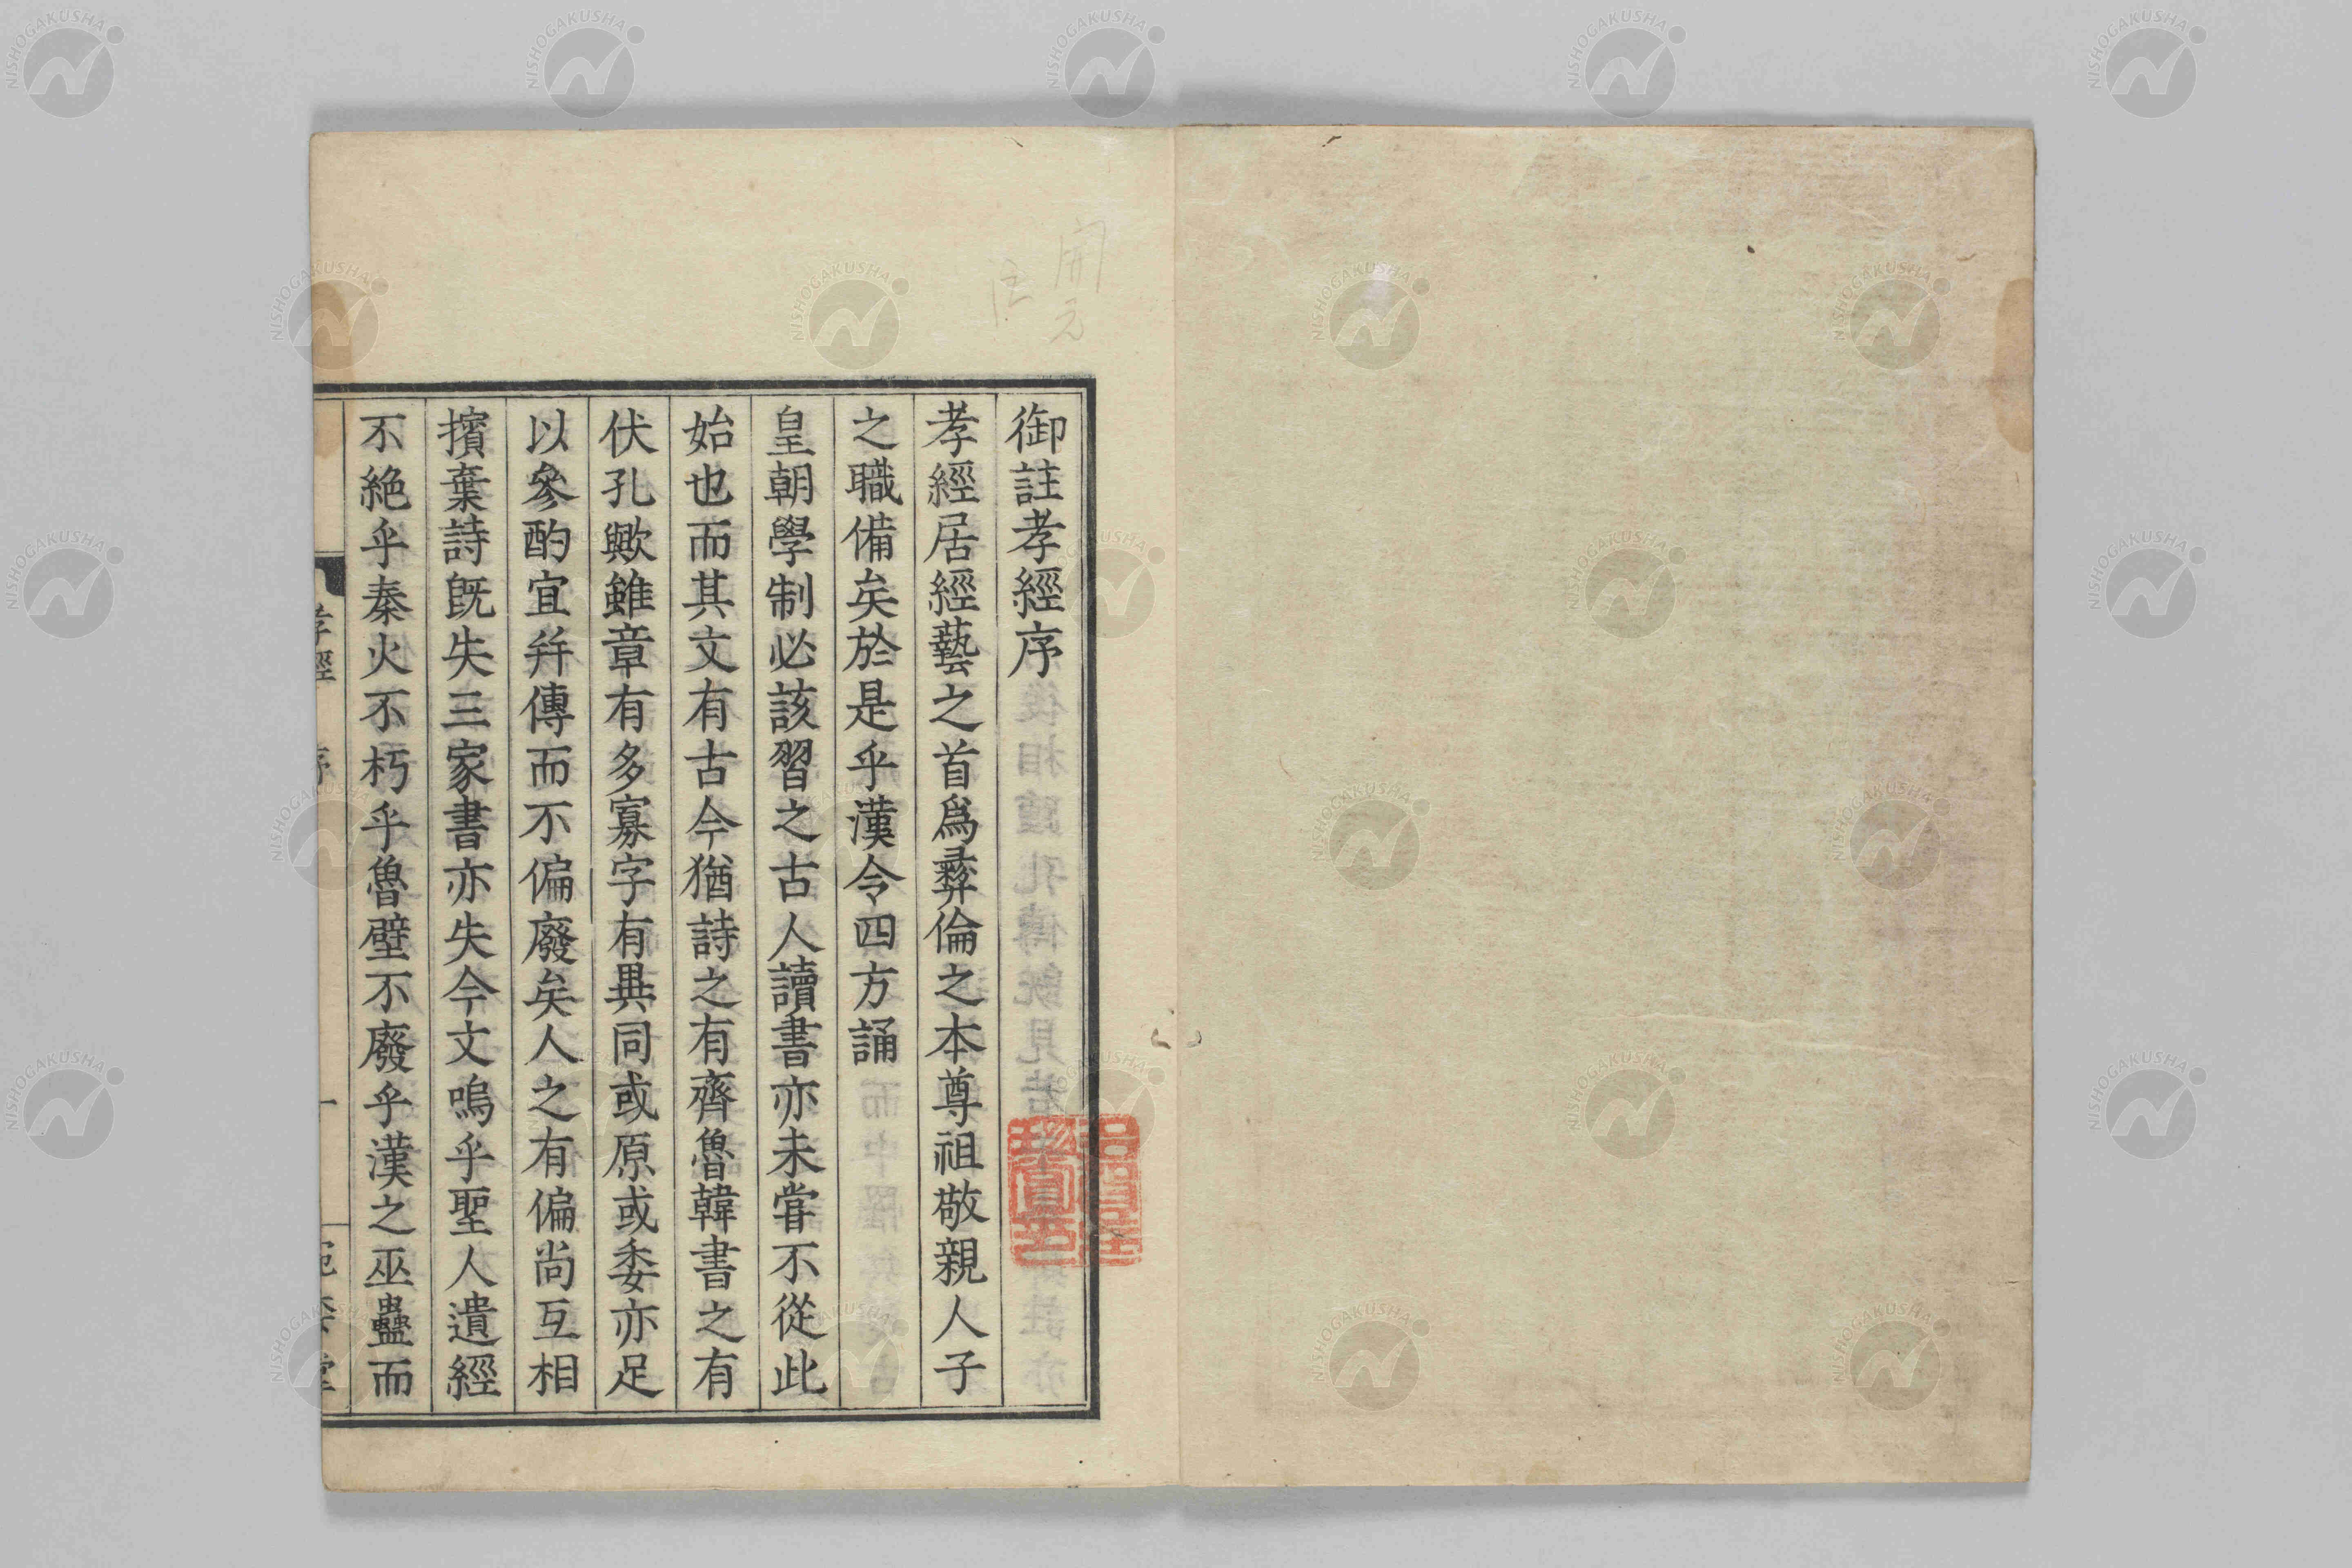 御註孝經序
孝經居經藝之首爲彝倫之本尊祖敬親人子
之職備矣於是乎漢令四方誦
皇朝學制必該習之古人讀書亦未甞不從此
始也而其文有古今猶詩之有齊魯韓書之有
伏孔歟雖章有多寡字有異同或原或委亦足
以參酌宜幷傳而不偏廢矣人之有偏尚互相
擯棄詩旣失三家書亦失今文嗚乎聖人遺經
不絶乎秦火不朽乎魯壁不廢乎漢之巫蠱而
孝經 序
一
開元
NISHOGAKUSHA